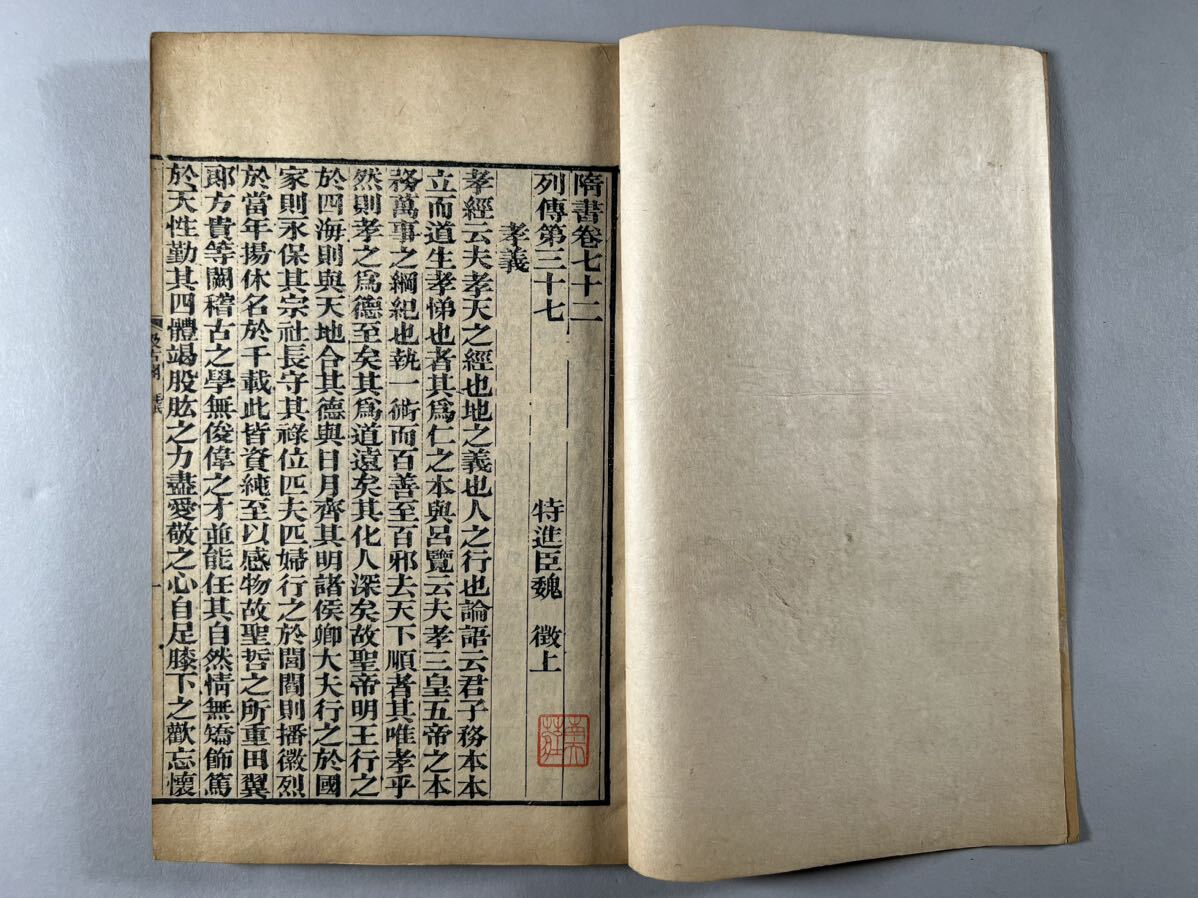 隋書卷七十二
列傳第三十七
特進臣魏 徵上
孝義
孝經云夫孝天之經也地之義也人之行也論語云君子務本本
立而道生孝悌也者其爲仁之本與呂覽云夫孝三皇五帝之本
務萬事之綱紀也執一術而百善至百邪去天下順者其唯孝乎
然則孝之爲德至矣其爲道遠矣其化人深矣故聖帝明王行之
於四海則與天地合其德與日月齊其明諸侯卿大夫行之於國
家則永保其宗社長守其祿位匹夫匹婦行之於閭閻則播徽烈
於當年揚休名於千載此皆資純至以感物故聖哲之所重田翼
郎方貴等闕稽古之學無俊偉之才並能任其自然情無矯飾篤
於天性勤其四體竭股肱之力盡愛敬之心自足膝下之歡忘懷
汲古閣
一